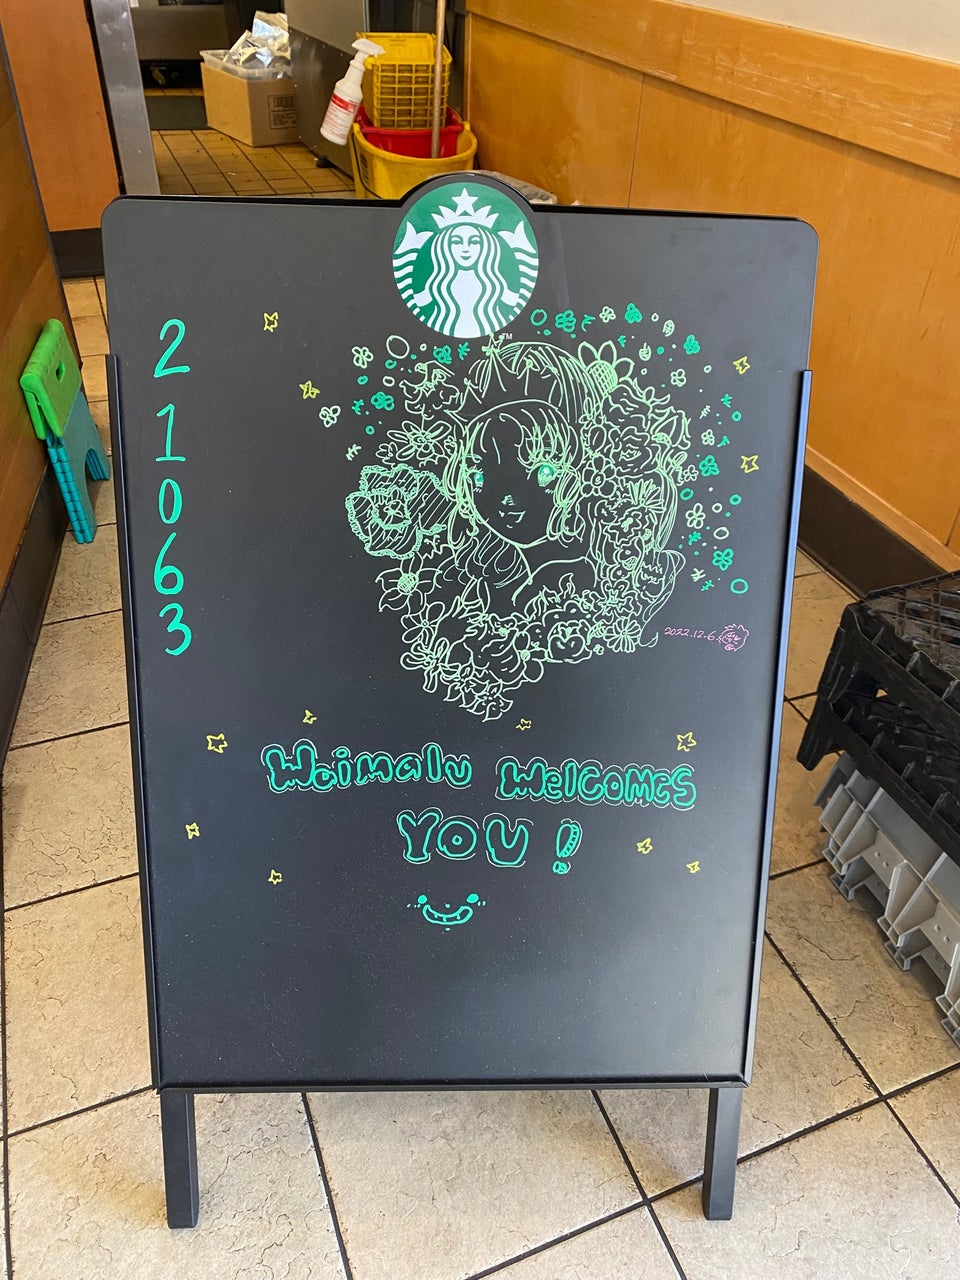 TM
2
1
0
6
3
2022.12.6.
Waimalu Welcomes
YOU!